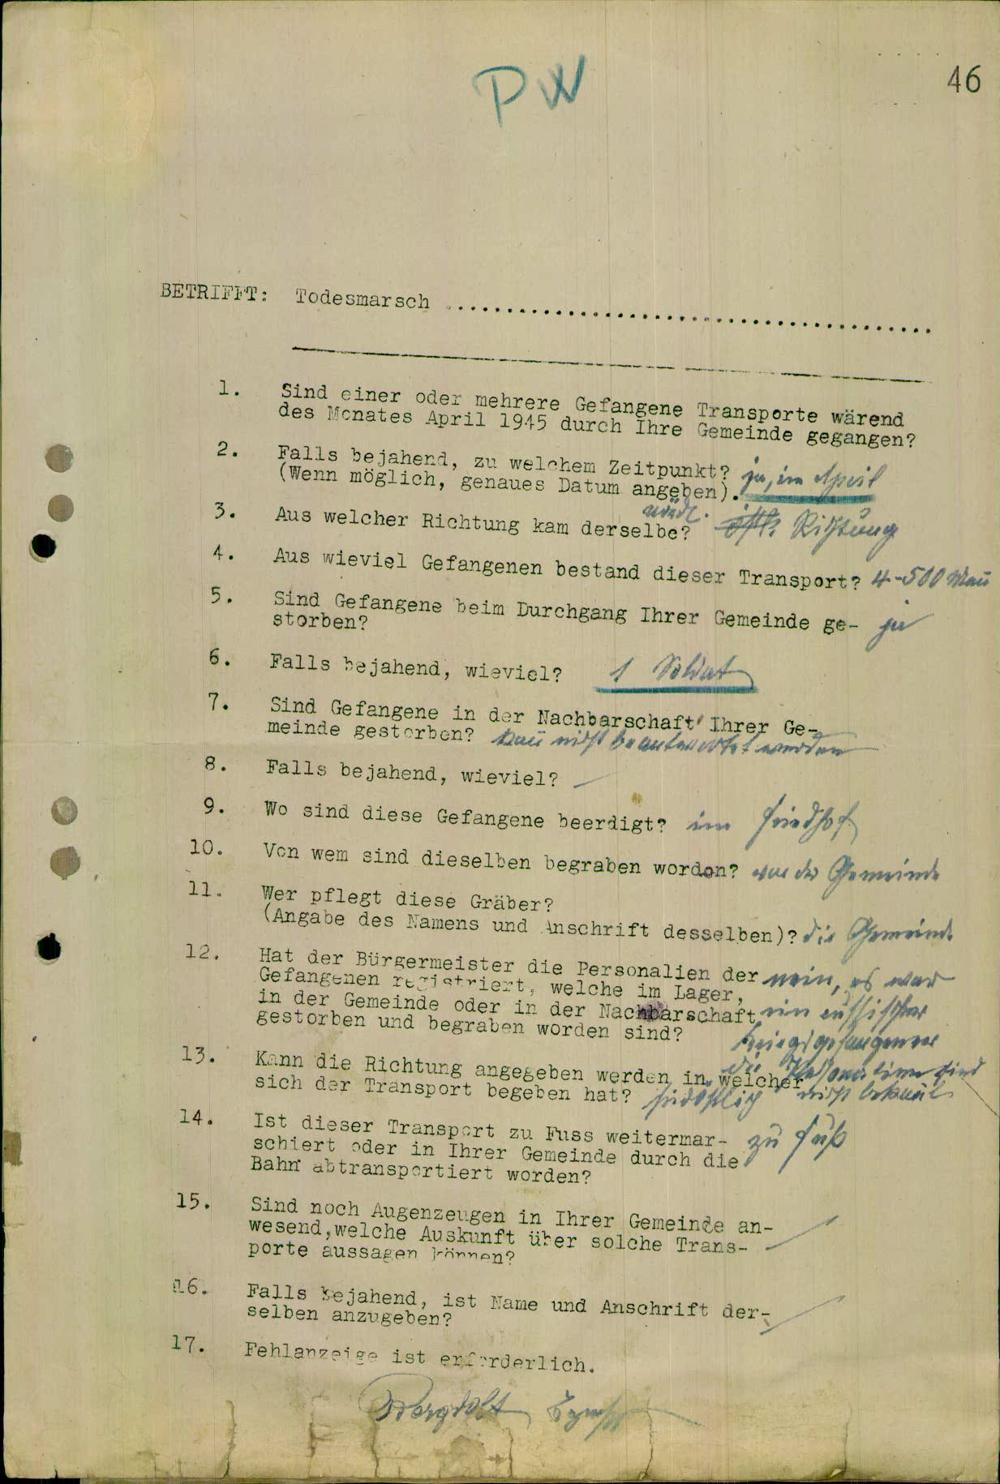 PW
46
BETRIFFT: Todesmarsch ........................................
1. Sind einer oder mehrere Gefangene Transporte wärend
des Monates April 1945 durch Ihre Gemeinde gegangen?
2. Falls bejahend, zu welchem Zeitpunkt? ja, im April
(Wenn möglich, genaues Datum angeben).
3. Aus welcher Richtung kam derselbe? Richtung
4. Aus wieviel Gefangenen bestand dieser Transport? 4-500 Mann
5. Sind Gefangene beim Durchgang Ihrer Gemeinde ge- ja
storben?
6. Falls bejahend, wieviel? 1 Soldat
7. Sind Gefangene in der Nachbarschaft Ihrer Ge-
meinde gestorben? kann nicht beantwortet werden
8. Falls bejahend, wieviel? –
9. Wo sind diese Gefangene beerdigt? im Friedhof
10. Von wem sind dieselben begraben worden? von der Gemeinde
11. Wer pflegt diese Gräber?
(Angabe des Namens und Anschrift desselben)? die Gemeinde
12. Hat der Bürgermeister die Personalien der nein, es war
Gefangenen registriert, welche im Lager,
in der Gemeinde oder in der Nachbarschaft ein russischer
gestorben und begraben worden sind? Kriegsgefangener
13. Kann die Richtung angegeben werden in welcher die Personalien sind
sich der Transport begeben hat? südöstlich nicht bekannt
14. Ist dieser Transport zu Fuss weitermar- zu Fuß
schiert oder in Ihrer Gemeinde durch die
Bahn abtransportiert worden?
15. Sind noch Augenzeugen in Ihrer Gemeinde an-
wesend, welche Auskunft über solche Trans- –
porte aussagen können?
16. Falls bejahend, ist Name und Anschrift der-
selben anzugeben? –
17. Fehlanzeige ist erforderlich.